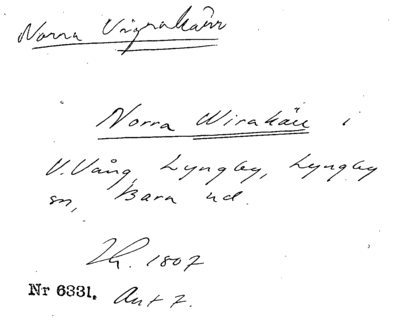 Norra Vigrakärr
Norra Wirakärr i
V. Vång, Lyngby, Lyngby
sn, Bara hd.
Lh. 1807
Nr 6331. Akt 7.